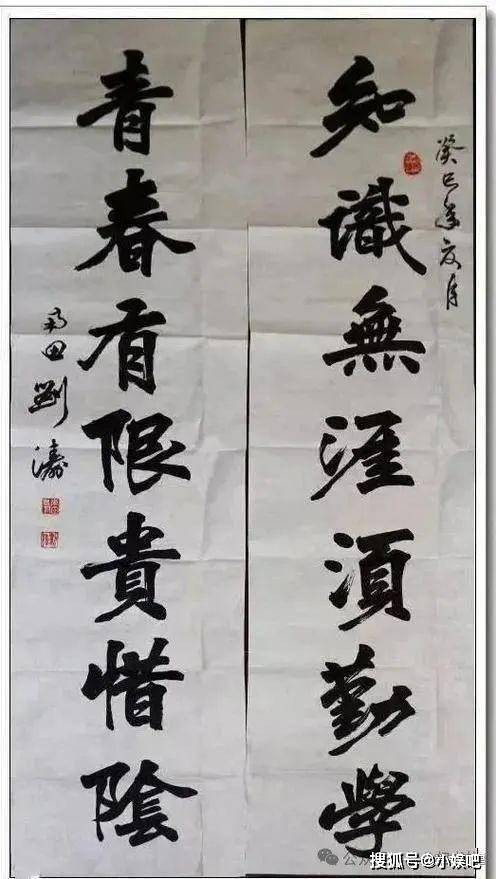 癸巳年夏月
知識無涯須勤學
青春有限貴惜陰
雨田劉濤
搜狐号@小娱吧